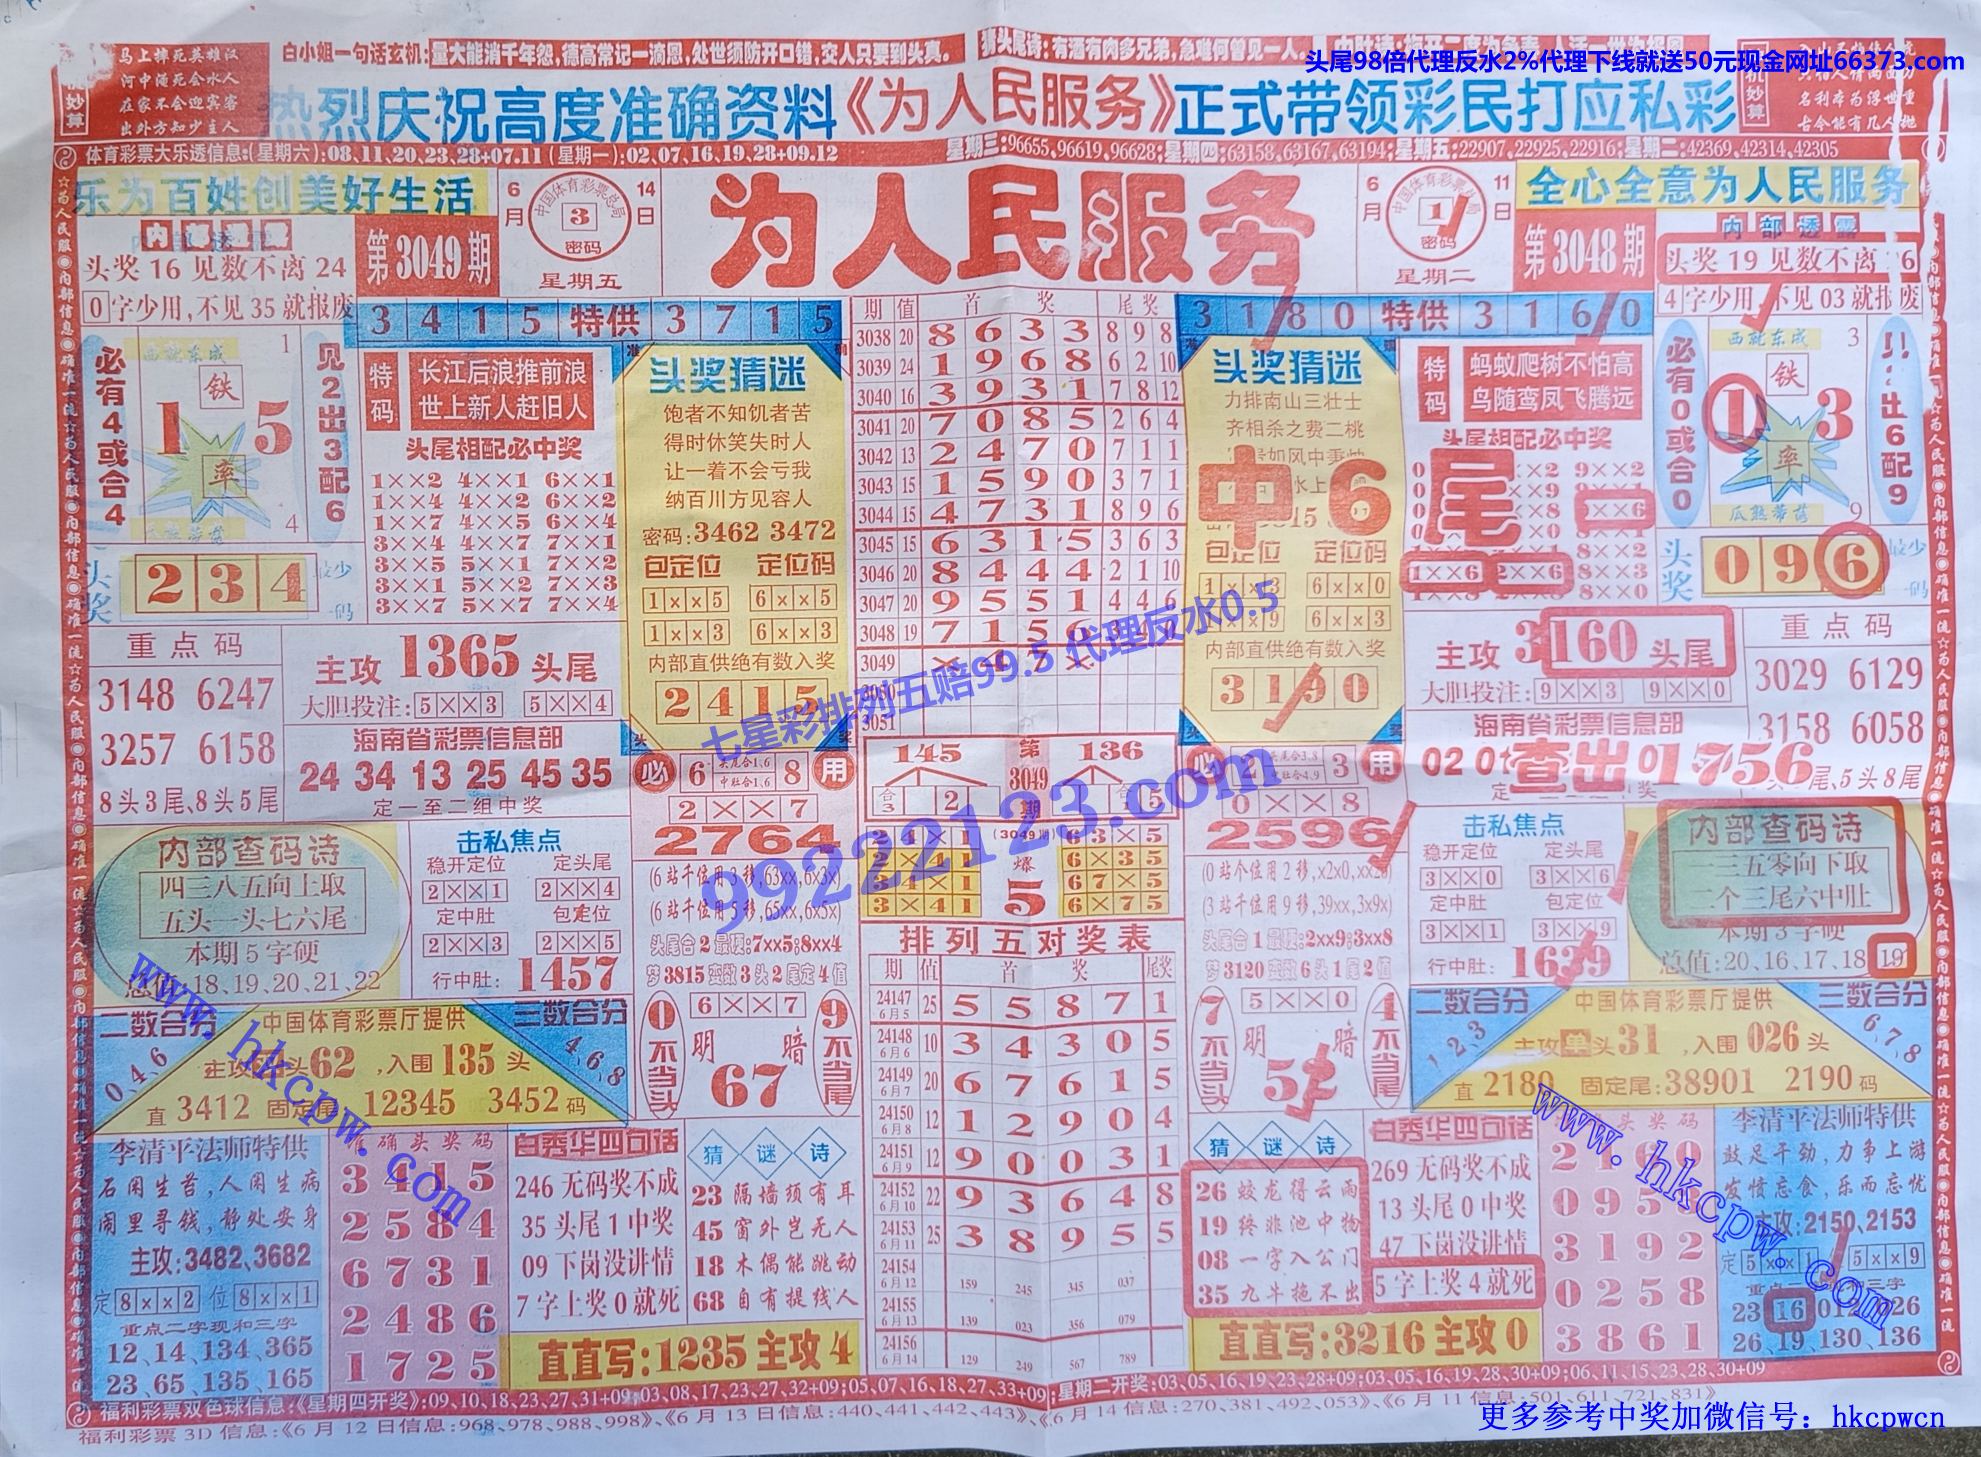 头尾98倍代理反水2%代理下线就送50元现金网址66373.com
马上摔死英雄汉
河中淹死会水人
在家不会迎宾客
出外方知少主人
妙算
白小姐一句话玄机:量大能消千年怨,德高常记一滴恩,处世须防开口错,交人只要到头真。
有酒有肉多兄弟,急难何曾见一人。
热烈庆祝高度准确资料《为人民服务》正式带领彩民打应私彩
妙算
名利本为浮世重
古今能有几人抛
体育彩票大乐透信息:(星期六):08,11,20,23,28+07.11 (星期一):02,07,16,19,28+09.12
星期三:96655,96619,96628;星期四:63158,63167,63194;星期五:22907,22925,22916;星期二:42369,42314,42305
乐为百姓创美好生活
内部透露
头奖 16 见数不离 24
0字少用,不见 35 就报废
第3049期
6月 14日
中国体育彩票总局
3
密码
星期五
为人民服务
6月 11日
1
密码
星期二
第3048期
全心全意为人民服务
内部透露
头奖 19 见数不离 6
4字少用,不见 03 就报废
3 4 1 5 特供 3 7 1 5
3 1 8 0 特供 3 1 6 0
必有4或合4
1
铁
1 5
率
4
见2出3配6
头奖
2 3 4
较少一码
特码
长江后浪推前浪
世上新人赶旧人
头尾相配必中奖
1××2 4××1 6××1
1××7 4××2 6××4
3××4 4××7 7××1
3××5 5××1 7××2
3××1 5××2 7××3
3××7 5××7 7××4
头奖猜迷
饱者不知饥者苦
得时休笑失时人
让一着不会亏我
纳百川方见容人
密码:3462 3472
包定位 定位码
1××5 6××5
1××3 6××3
内部直供绝有数入奖
2 4 1 5
期 值 首奖 尾奖
3038 20 8 6 3 3 8 9 8
3039 24 1 9 6 8 6 2 10
3040 16 3 9 3 1 7 8 12
3041 20 7 0 8 5 2 6 4
3042 13 2 4 7 0 7 1 1
3043 15 1 5 9 0 3 7 1
3044 15 4 7 3 1 8 9 6
3045 15 6 3 1 5 3 6 3
3046 20 8 4 4 4 2 1 10
3047 20 9 5 5 1 4 4 6
3048 19 7 1 5 6
3049
3050
3051
头奖猜迷
力排南山三壮士
齐相杀之费二桃
中 6 尾
包定位 定位码
1××3 6××0
6××3
内部直供绝有数入奖
3 1 9 0
特码
蚂蚁爬树不怕高
鸟随鸾凤飞腾远
头尾相配必中奖
××2 9××2
××9
××8
8××2
1××6 2××6 8××3
8××0
必有0或合0
西就东成
3
铁
1 3
率
瓜熟蒂落
9
出6配9
头奖
0 9 6
较少一码
重点码
3148 6247
3257 6158
8头3尾、8头5尾
主攻 1365 头尾
大胆投注: 5××3 5××4
海南省彩票信息部
24 34 13 25 45 35
定一至二组中奖
必 6 头尾合1,6 中肚合1,6 8 用
2××7
2764
(6 站千位用 3 移,63xx,6x3x)
(6 站千位用 5 移,65xx,6x5x)
头尾合 2 最硬:7xx5;8xx4
梦3815变数3头2尾定4值
145 第3049期 136
合3 2 合1 5
(3049期)
爆
5
2 4 × 1 6 3 × 5
2 × 4 1 6 × 3 5
3 4 × 1 6 7 × 5
3 × 4 1 6 × 7 5
七星彩排列五赔99.5 代理反水0.5
99222123.com
2 3 用
0××8
2596
(0 站个位用 2 移,x2x0,xx20)
(3 站千位用 9 移,39xx,3x9x)
头尾合 1 最硬:2xx9;3xx8
梦3120变数6头1尾2值
主攻 3160 头尾
大胆投注: 9××3 9××0
海南省彩票信息部
查出01756
重点码
3029 6129
3158 6058
尾,5头8尾
内部查码诗
四三八五向上取
五头一头七六尾
本期5字硬
总值:18、19、20、21、22
击私焦点
稳开定位 定头尾
2××1 2××4
定中肚 包定位
2××3 2××5
行中肚: 1457
排列五对奖表
期 值 首奖 尾奖
24147 6月5 25 5 5 8 7 1
24148 6月6 10 3 4 3 0 5
24149 6月7 20 6 7 6 1 5
24150 6月8 12 1 2 9 0 4
24151 6月9 12 9 0 0 3 1
24152 6月10 22 9 3 6 4 8
24153 6月11 25 3 8 9 5 5
24154 6月12 159 245 345 037
24155 6月13 139 023 356 079
24156 6月14 129 249 567 789
击私焦点
稳开定位 定头尾
3××0 3××6
定中肚 包定位
3××1 3××9
行中肚: 1639
内部查码诗
二五零向下取
二个三尾六中肚
本期3字硬
总值:20、16、17、18、19
二数合分
0、4、6
中国体育彩票厅提供
三数合分
4、6、8
头62,入围 135 头
直 3412 固定尾 12345 3452 码
0不当头
6××7
明 暗
67
9不当尾
7不当头
5××0
明 暗
4不当尾
二数合分
1、2、3
中国体育彩票厅提供
三数合分
6、7、8
主攻单头31,入围 026 头
直 2180 固定尾:38901 2190 码
李清平法师特供
石闲生苔,人闲生病
闹里寻钱,静处安身
主攻:3482、3682
定 8××2 位 8××1
重点二字现和三字
12、14、134、365
23、65、135、165
准确头奖码
3 4 1 5
2 5 8 4
6 7 3 1
2 4 8 6
1 7 2 5
白秀华四句话
246 无码奖不成
35 头尾 1 中奖
09 下岗没讲情
7 字上奖 0 就死
猜谜诗
23 隔墙须有耳
45 窗外岂无人
18 木偶能跳动
68 自有提线人
直直写:1235 主攻 4
猜谜诗
26 蛟龙得云雨
19 终非池中物
08 一字入公门
35 九牛拖不出
白秀华四句话
269 无码奖不成
13 头尾 0 中奖
47 下岗没讲情
5 字上奖 4 就死
直直写:3216 主攻 0
3 1 9 2
0 2 5 8
3 8 6 1
李清平法师特供
鼓足干劲,力争上游
发愤忘食,乐而忘忧
主攻:2150、2153
5××9
26、19、130、136
www.hkcpw.com
www.hkcpw.com
福利彩票双色球信息:《星期四开奖》:09,10,18,23,27,31+09;03,08,17,23,27,32+09;05,07,16,18,27,33+09;星期二开奖;03,05,16,19,23,28+09;03,05,16,19,28,30+09;06,11,15,23,28,30+09
福利彩票 3D 信息:《6 月 12 日信息:968,978,988,998》、《6 月 13 日信息:440,441,442,443》、《6 月 14 信息:270,381,492,053》、《6 月 11 信息:501,611,721,831》
更多参考中奖加微信号:hkcpwcn